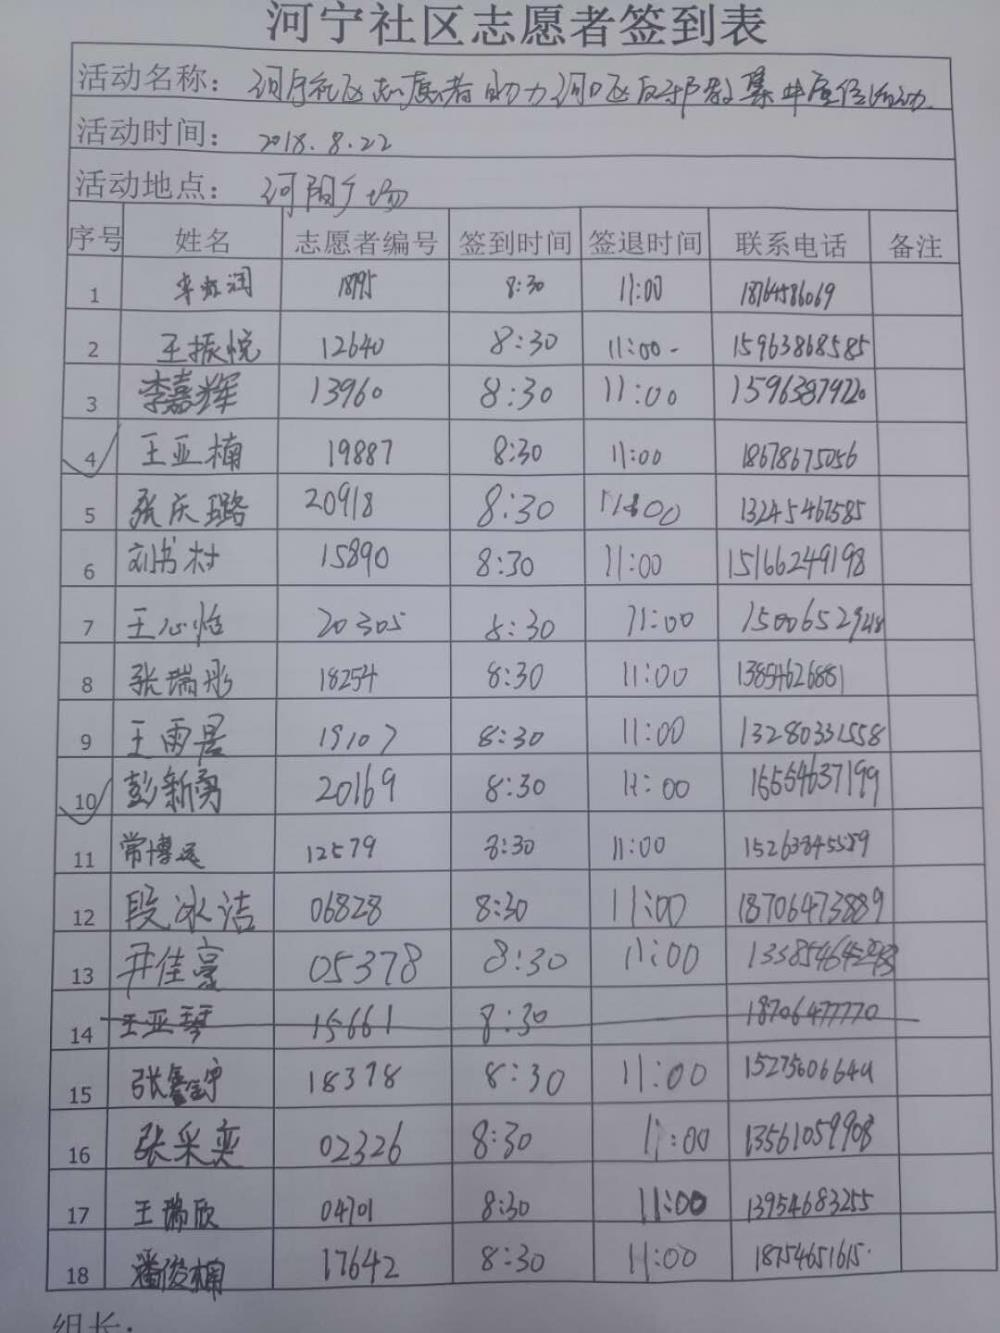 河宁社区志愿者签到表
活动名称: 河宁社区志愿者助力河口区反邪教集中宣传活动
活动时间: 2018.8.22
活动地点: 河阳广场
序号 姓名 志愿者编号 签到时间 签退时间 联系电话 备注
1 18795 8:30 11:00 18764586069
2 王振悦 12640 8:30 11:00 15963868585
3 李嘉辉 13960 8:30 11:00 15963879220
4 王亚楠 19887 8:30 11:00 18678675056
5 张庆璐 20918 8:30 11:00 13245467585
6 刘书村 15890 8:30 11:00 15166249198
7 王心怡 20305 8:30 11:00
8 张瑞彤 18254 8:30 11:00 13854626881
9 王雨晨 19107 8:30 11:00 13280331558
10 彭新勇 20169 8:30 11:00 15554637199
11 常博远 12579 8:30 11:00
12 段冰洁 06828 8:30 11:00 18706473889
13 尹佳豪 05378 8:30 11:00
14 王亚琴 15661 8:30 18706477770
15 张鑫宇 18378 8:30 11:00
16 张采奕 02326 8:30 11:00 13561059908
17 王瑞欣 04701 8:30 11:00 13954683255
18 潘俊楠 17642 8:30 11:00 18754651615
组长: